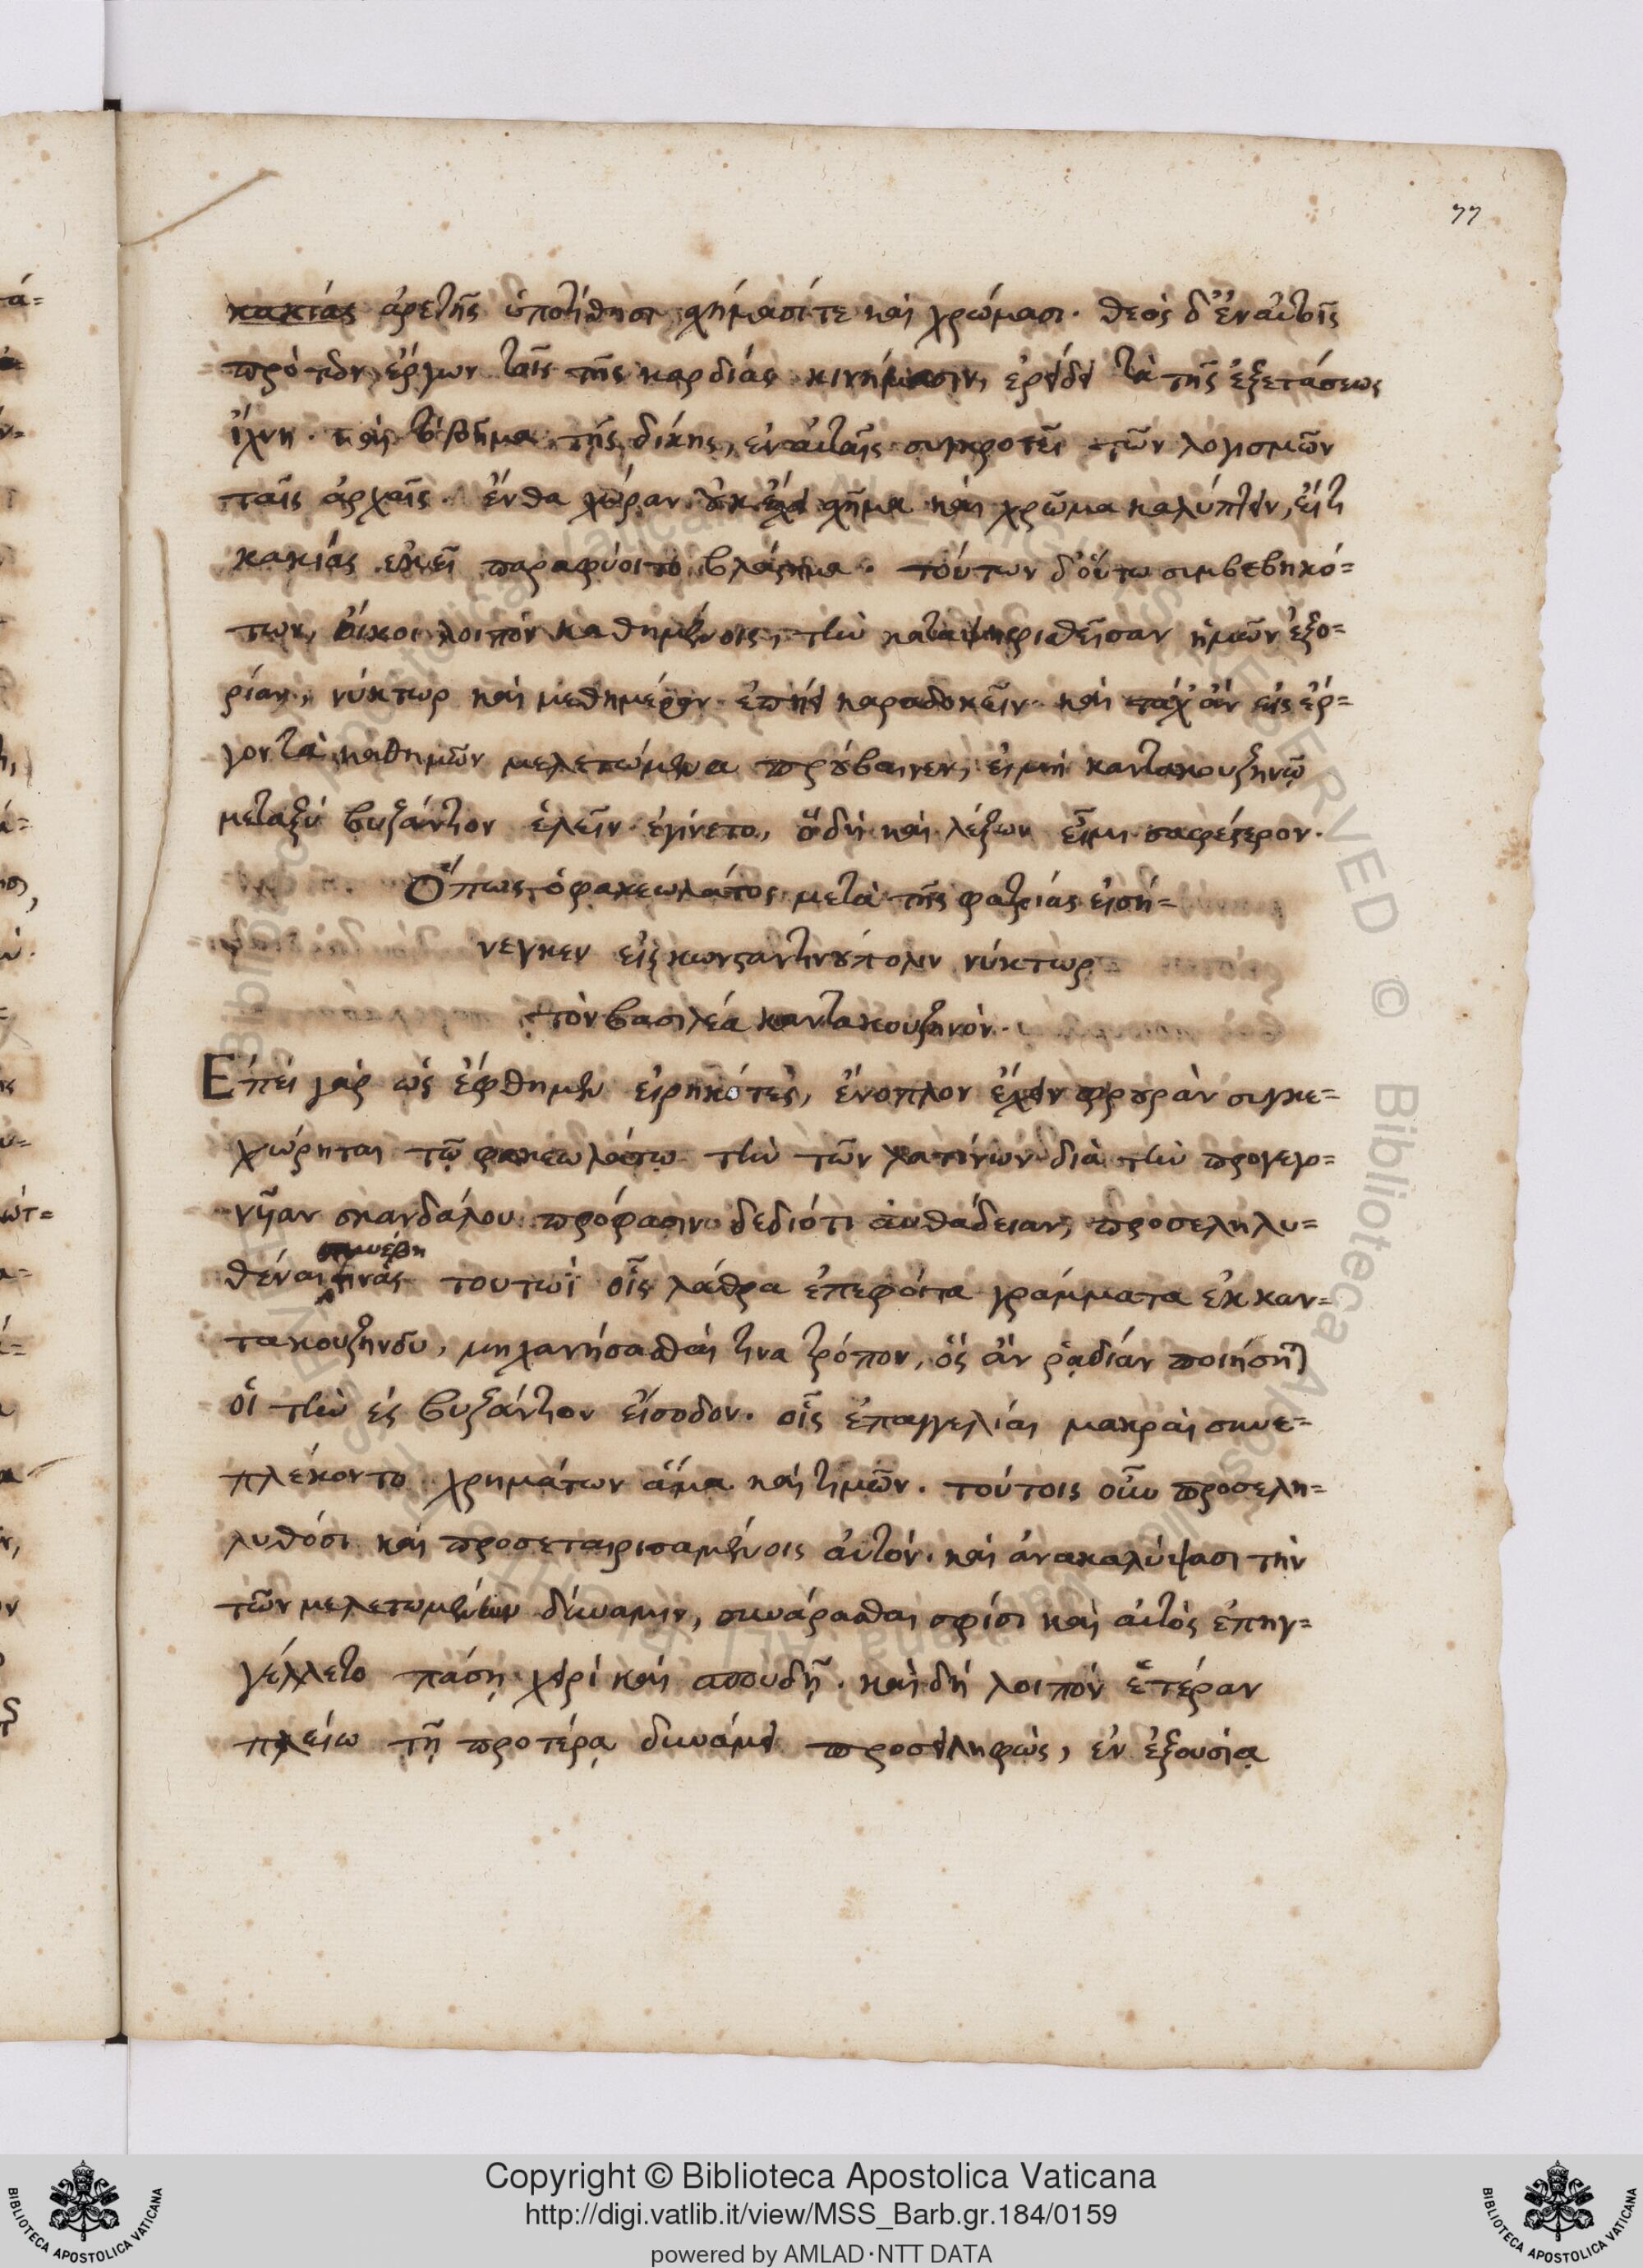 77
κακίας ἀρετῆς ὑποτίθησι σχήμασί τε καὶ χρώμασι. θεὸς δ' ἐν αὐτοῖς
πρὸ τῶν ἔργων ταῖς τῆς καρδίας κινήμασιν, ἐρείδει τὰ τῆς ἐξετάσεως
ἴχνη. καὶ τὸ βῆμα τῆς δίκης, ἐν αὐταῖς συγκροτεῖ τῶν λογισμῶν
ταῖς ἀρχαῖς. ἔνθα χώραν οὐκ ἔχει σχῆμα καὶ χρῶμα καλύπτειν, εἴ τι
κακίας ἐκεῖ παραφύοιτο βλάστημα. τούτων δ' οὕτω συμβεβηκό=
των, οἴκοι λοιπὸν καθημένοις, τὴν καταψηφισθεῖσαν ἡμῶν ἐξο=
ρίαν, νύκτωρ καὶ μεθημέραν ἐπῄει καραδοκεῖν. καὶ τάχ' ἂν εἰς ἔρ=
γον τὰ καθημῶν μελετώμενα προύβαινεν, εἰ μὴ καντακουζηνῷ
μεταξὺ βυζάντιον ἑλεῖν ἐγίνετο, ὃ δὴ καὶ λέξων εἶμι σαφέστερον.
Ὅπως ὁ φακεωλάτος μετὰ τῆς φατρίας εἰσή=
νεγκεν εἰς κωνσταντινούπολιν νύκτωρ
τὸν βασιλέα καντακουζηνόν.
Επεὶ γὰρ ὡς ἔφθημεν εἰρηκότες, ἔνοπλον ἔχειν φρουρὰν συγκε=
χώρηται τῷ φακεωλάτῳ τὴν τῶν λατίνων διὰ τὴν προγεγο=
νυῖαν σκανδάλου πρόφασιν δεδιότι αὐθάδειαν, προσεληλυ=
συνέβη
θέναι τινὰς τουτωῒ οἷς λάθρα ἐπεφοίτα γράμματα ἐκ καν=
τακουζηνοῦ, μηχανήσασθαι τινα τρόπον, ὃς ἂν ῥᾳδίαν ποιήσῃ
οἱ τὴν ἐς βυζάντιον εἴσοδον. οἷς ἐπαγγελίαι μακραὶ συνε=
πλέκοντο χρημάτων ἅμα καὶ τιμῶν. τούτοις οὖν προσελη=
λυθόσι καὶ προσεταιρισαμένοις αὐτόν. καὶ ἀνακαλύψασι τὴν
τῶν μελετωμένων δύναμιν, συνάρασθαι σφίσι καὶ αὐτὸς ἐπηγ=
γέλλετο πάσῃ χειρὶ καὶ σπουδῇ. καὶ δὴ λοιπὸν ἑτέραν
πλείω τῇ προτέρᾳ δυνάμει προσειληφὼς, ἐν ἐξουσίᾳ
Copyright © Biblioteca Apostolica Vaticana
http://digi.vatlib.it/view/MSS_Barb.gr.184/0159
powered by AMLAD·NTT DATA
BIBLIOTECA APOSTOLICA VATICANA
BIBLIOTECA APOSTOLICA VATICANA